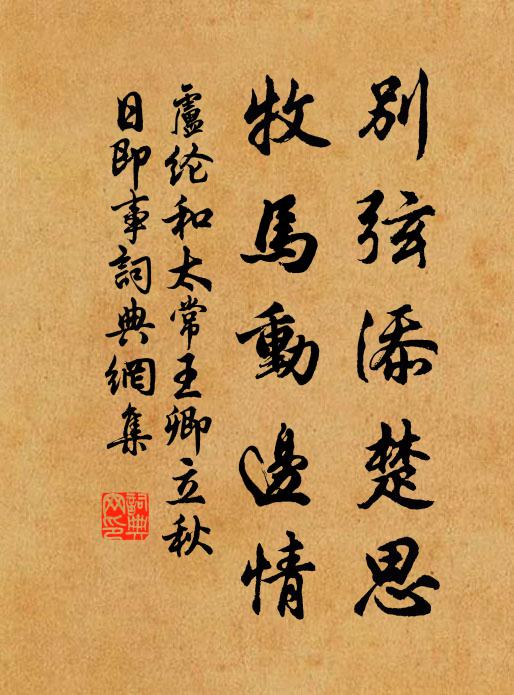 别弦添楚思
牧馬動邊情
盧纶和太常王卿立秋
日即事詞典網集
詞典
网印